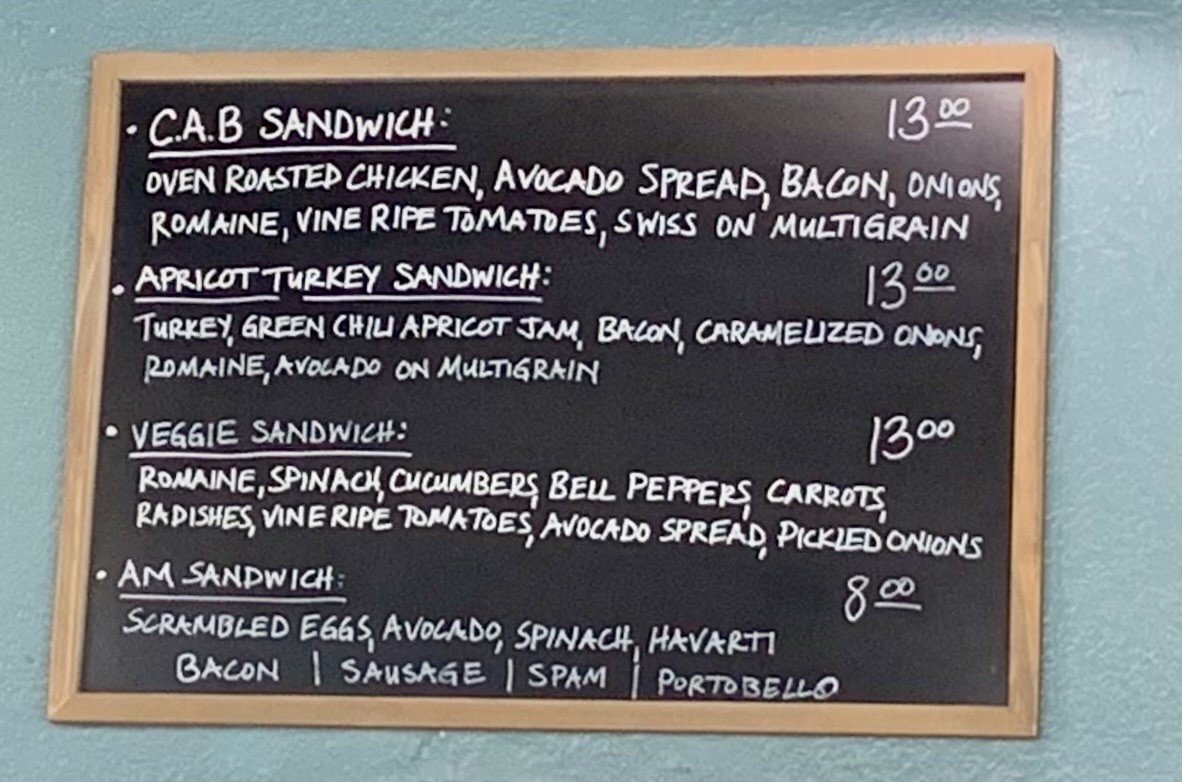 • C.A.B SANDWICH: 13 00
OVEN ROASTED CHICKEN, AVOCADO SPREAD, BACON, ONIONS,
ROMAINE, VINE RIPE TOMATOES, SWISS ON MULTIGRAIN
• APRICOT TURKEY SANDWICH: 13 00
TURKEY, GREEN CHILI APRICOT JAM, BACON, CARAMELIZED ONONS,
ROMAINE, AVOCADO ON MULTIGRAIN
• VEGGIE SANDWICH: 13 00
ROMAINE, SPINACH, CUCUMBERS, BELL PEPPERS, CARROTS,
RADISHES, VINE RIPE TOMATOES, AVOCADO SPREAD, PICKLED ONIONS
• AM SANDWICH: 8 00
SCRAMBLED EGGS, AVOCADO, SPINACH, HAVARTI
BACON | SAUSAGE | SPAM | PORTOBELLO